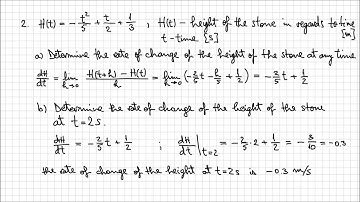 2. H(t) = -t²/5 + t/2 + 1/3 ; H(t) - height of the stone in regards to time [m]
t - time [s]
a) Determine the rate of change of the height of the stone at any time
dH/dt = lim h→0 H(t+h) - H(t)/h = lim h→0 (-2/5 t - h/5 + 1/2) = -2/5 t + 1/2
b) Determine the rate of change of the height of the stone
at t = 2s.
dH/dt = -2/5 t + 1/2 ; dH/dt |t=2 = -2/5 · 2 + 1/2 = -3/10 = -0.3
the rate of change of the height at t=2s is -0.3 m/s